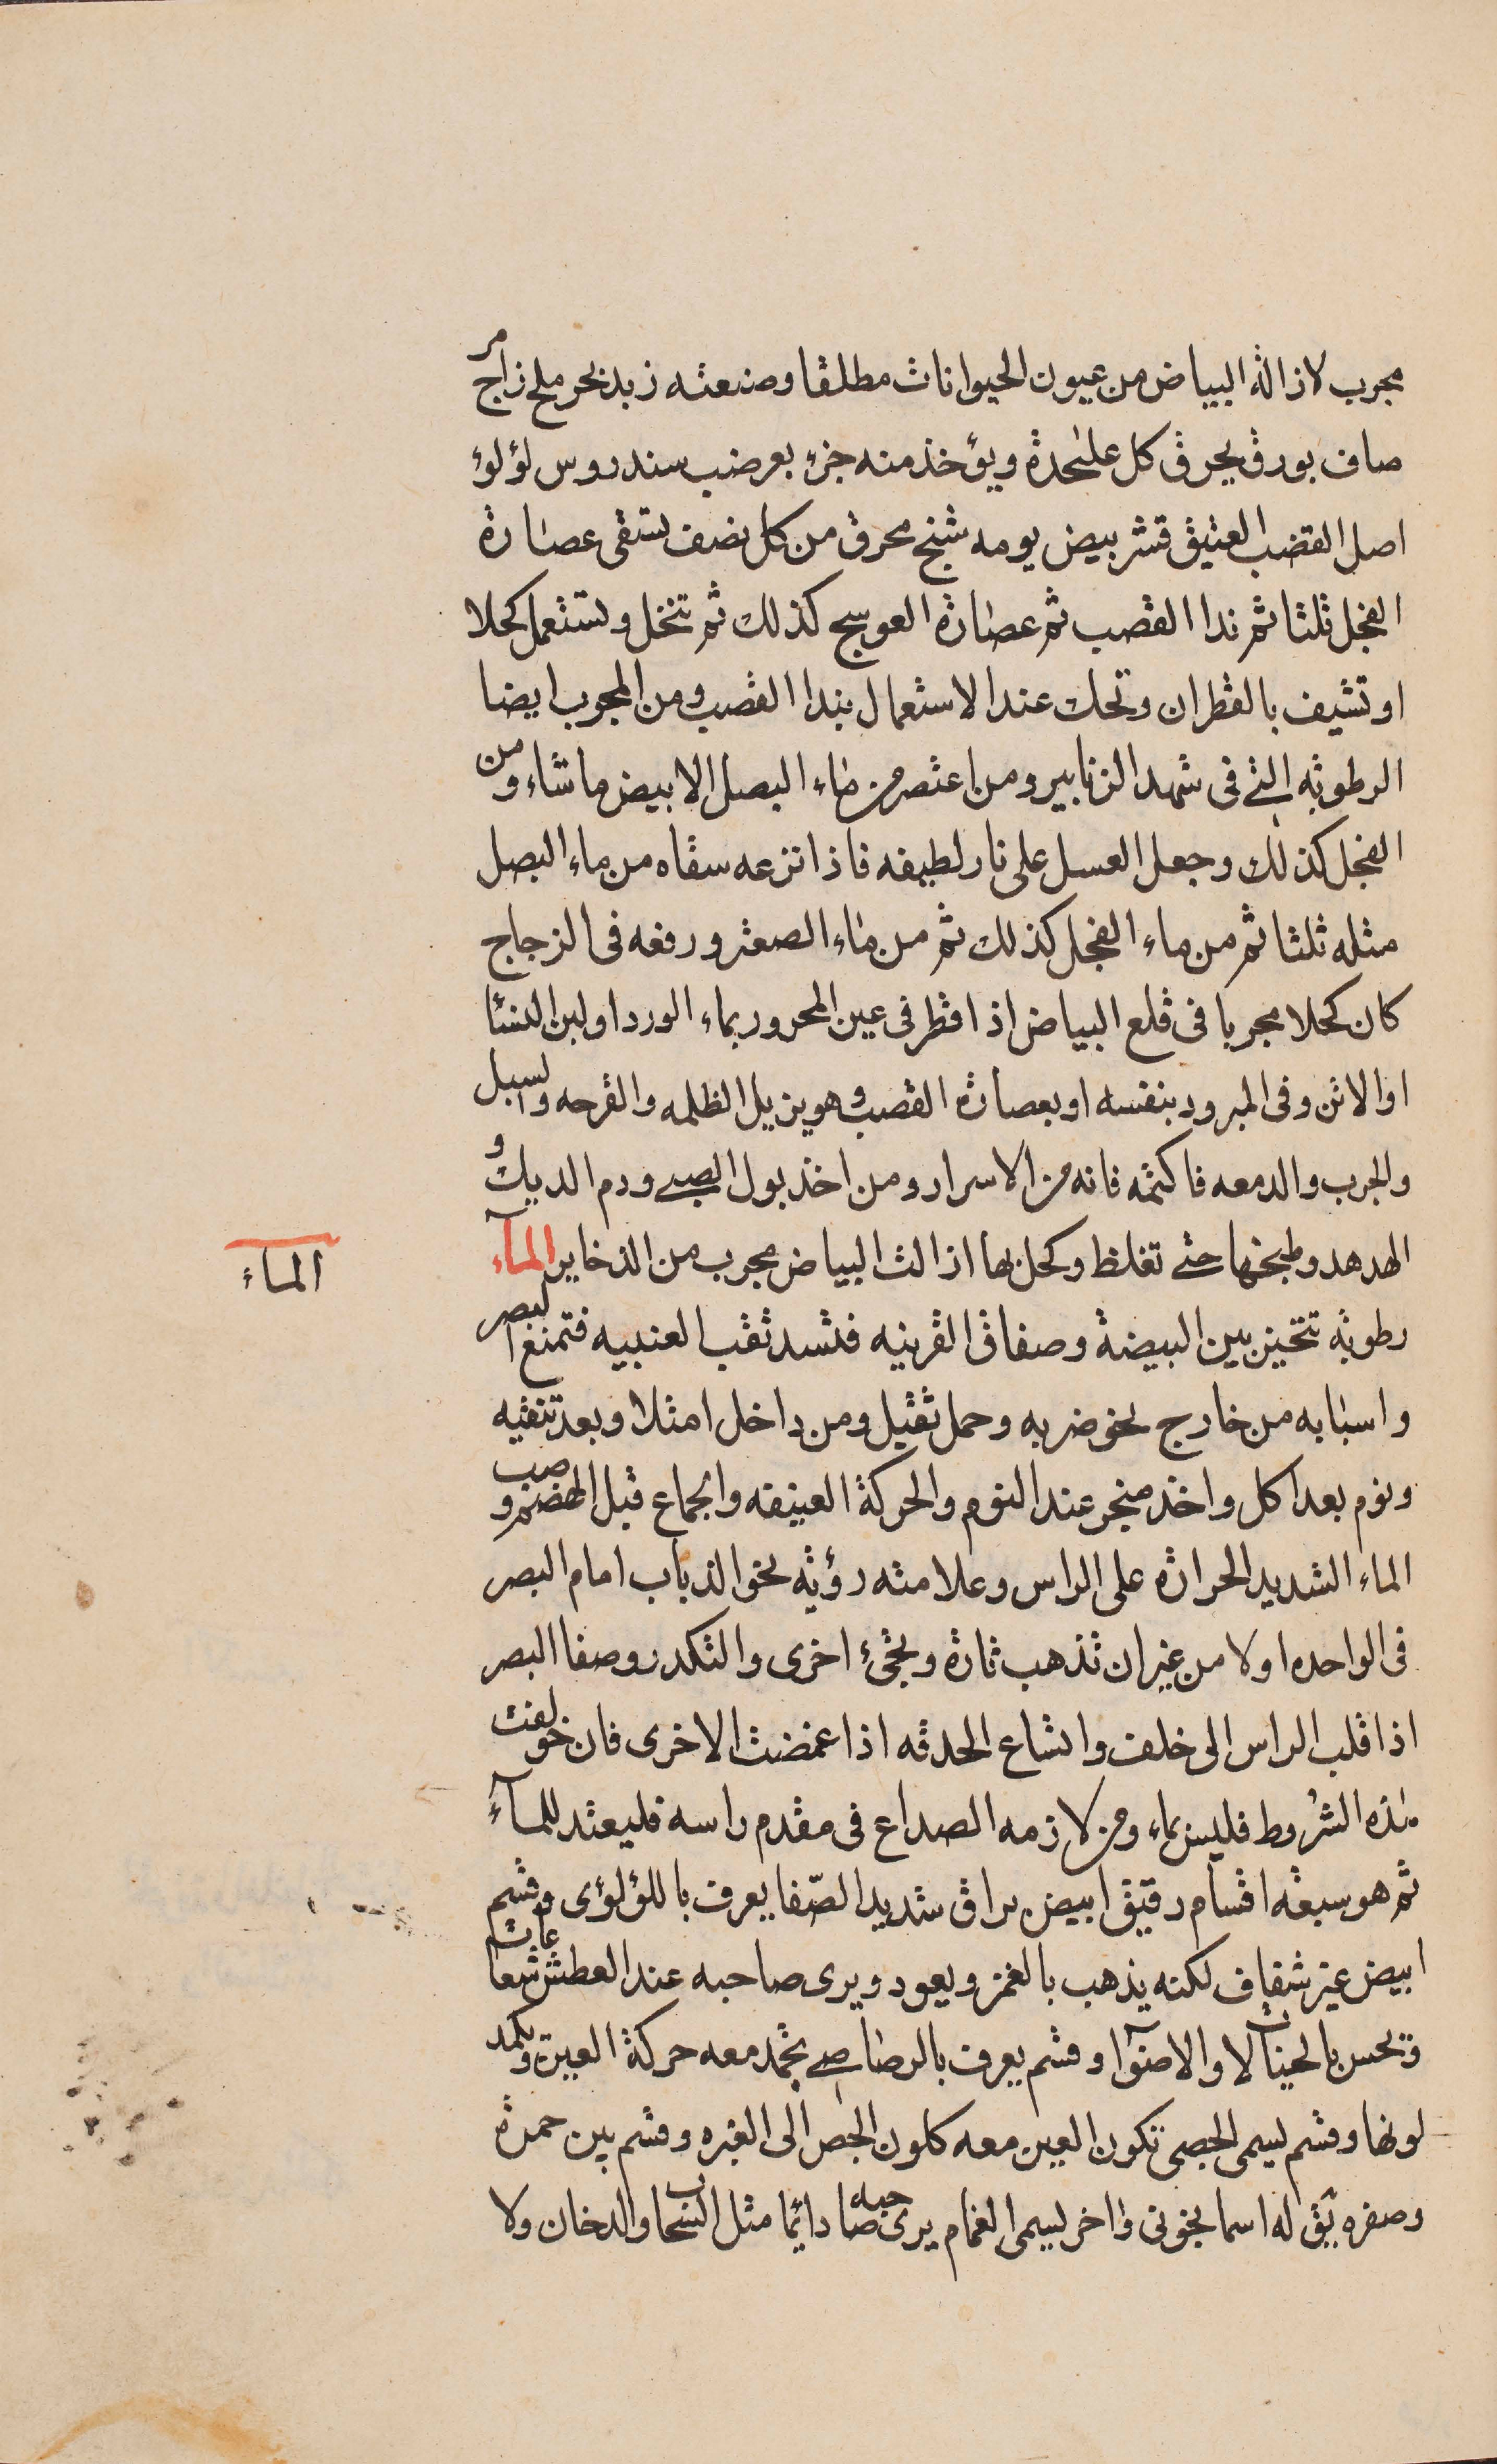 مجرب لازالة البياض من عيون الحيوانات مطلقا وصنعته زبد بحر ملح زاج مر
صاف بورق يحرق كل على حدة ويؤخذ منه جزء بعر ضب سندروس لؤلؤ
اصل القصب العتيق قشر بيض يومه شنج محرق من كل نصف تسقى عصارة
الفجل ثلثا ثم ندا القصب ثم عصارة العوسج كذلك ثم تنخل وتستعمل كحلا
او تشيف بالقطران وتحك عند الاستعمال بندا القصب ومن المجرب ايضا
الرطوبة التى فى شهد الزنابير ومن اعتصر من ماء البصل الابيض ما شاء ومن
الفجل كذلك وجعل العسل على نار لطيفه فاذا نزعه سقاه من ماء البصل
مثله ثلثا ثم من ماء الفجل كذلك ثم من ماء الصعتر ورفعه فى الزجاج
كان كحلا مجربا فى قلع البياض اذا قطر فى عين المحرور بماء الورد او لبن النسا
او الاتن وفى المبرود بنفسه او بعصارة القصب وهو يزيل الظلمه والقرحه والسبل
والجرب والدمعه فاكتمه فانه من الاسرار ومن اخذ بول الصبى ودم الديك و
الهدهد وطبخها حتى تغلظ وكحل بها ازالت البياض مجرب من الذخاير المآء
الماء
رطوبة تتحيز بين البيضة وصفاق القرنيه فتسد ثقب العنبيه فتمنع البصر
واسبابه من خارج نحو ضربه وحمل ثقيل ومن داخل امتلا وبعد تنقيه
ونوم بعد اكل واخذ مبخر عند النوم والحركة العنيفه والجماع قبل الهضم وصب
الماء الشديد الحرارة على الراس وعلامته رؤية نحو الذباب امام البصر
فى الواحده اولا من غير ان تذهب تارة وتجئ اخرى والتكدر وصفا البصر
اذا قلب الراس الى خلف واتساع الحدقه اذا غمضت الاخرى فان خولفت
هذه الشروط فليس بماء ومن لازمه الصداع فى مقدم راسه فليعتد للمآء
ثم هو سبعة اقسام رقيق ابيض براق شديد الصّفا يعرف باللؤلؤى وقسم
ابيض غير شفاف لكنه يذهب بالغمز ويعود ويرى صاحبه عند العطش شعاعا ثم
وتحس بالخيالات والاضوآ وقسم يعرف بالرصاصى تجمد معه حركة العين ويكمد
لونها وقسم يسمى الجصى تكون العين معه كلون الجص الى الغبره وقسم بين حمرة
وصفره يق له اسمانجونى واخر يسمى الغمام يرى صاحبه دائما مثل السحاب والدخان ولا